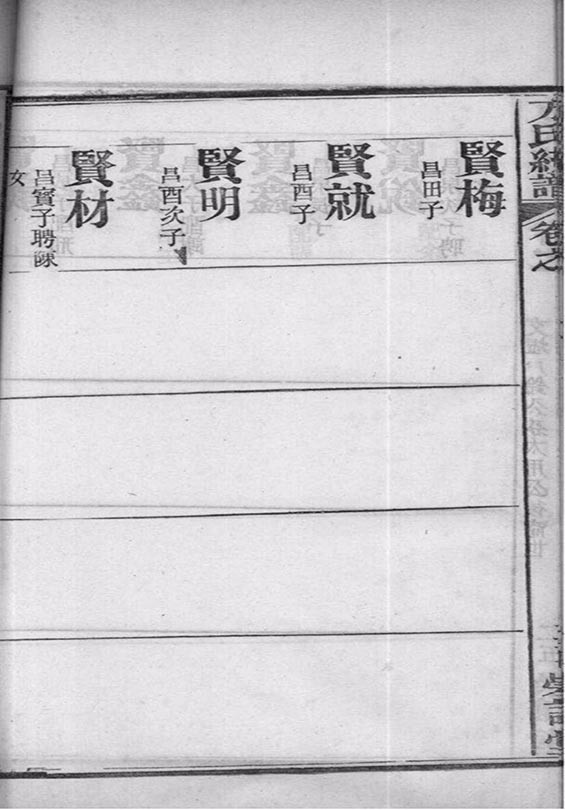 方氏統譜
卷之
賢梅
昌田子
賢就
昌酉子
賢明
昌酉次子
賢材
昌賓子聘陳
女